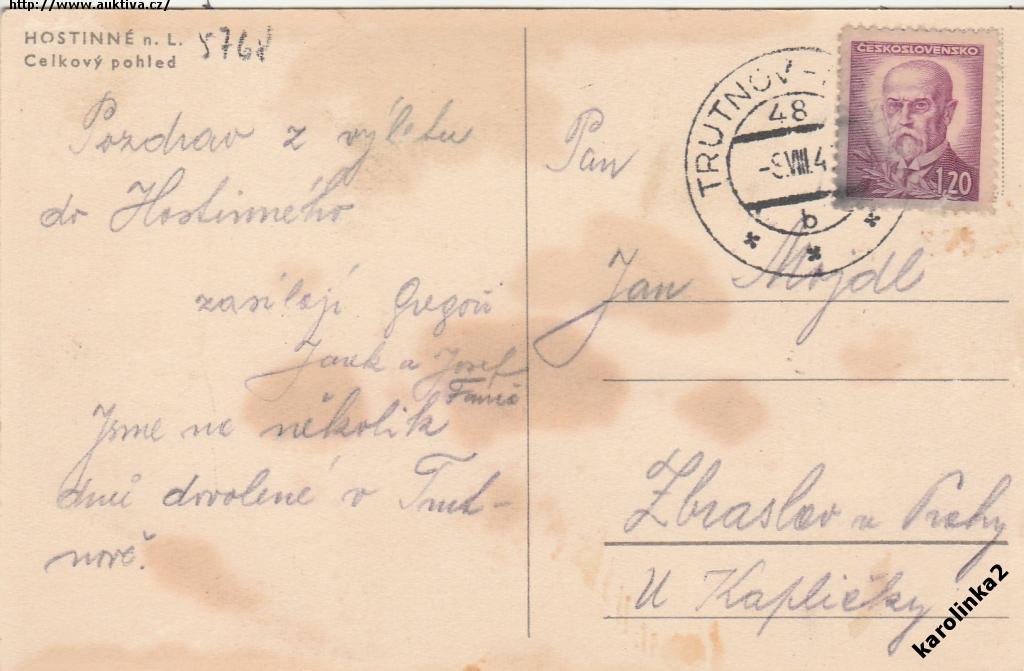 http://www.auktiva.cz/
HOSTINNÉ n. L.
Celkový pohled
Pozdrav z výletu
do Hostinného
zasílají Gregoři
Jarek a Josef
Jsme na několik
dnů dovolené v Trut-
nově.
ČESKOSLOVENSKO
1,20
TRUTNOV
48
-9.VIII.4
b
Pan
Jan Mojdl
Zbraslav u Prahy
U Kapličky
karolinka2